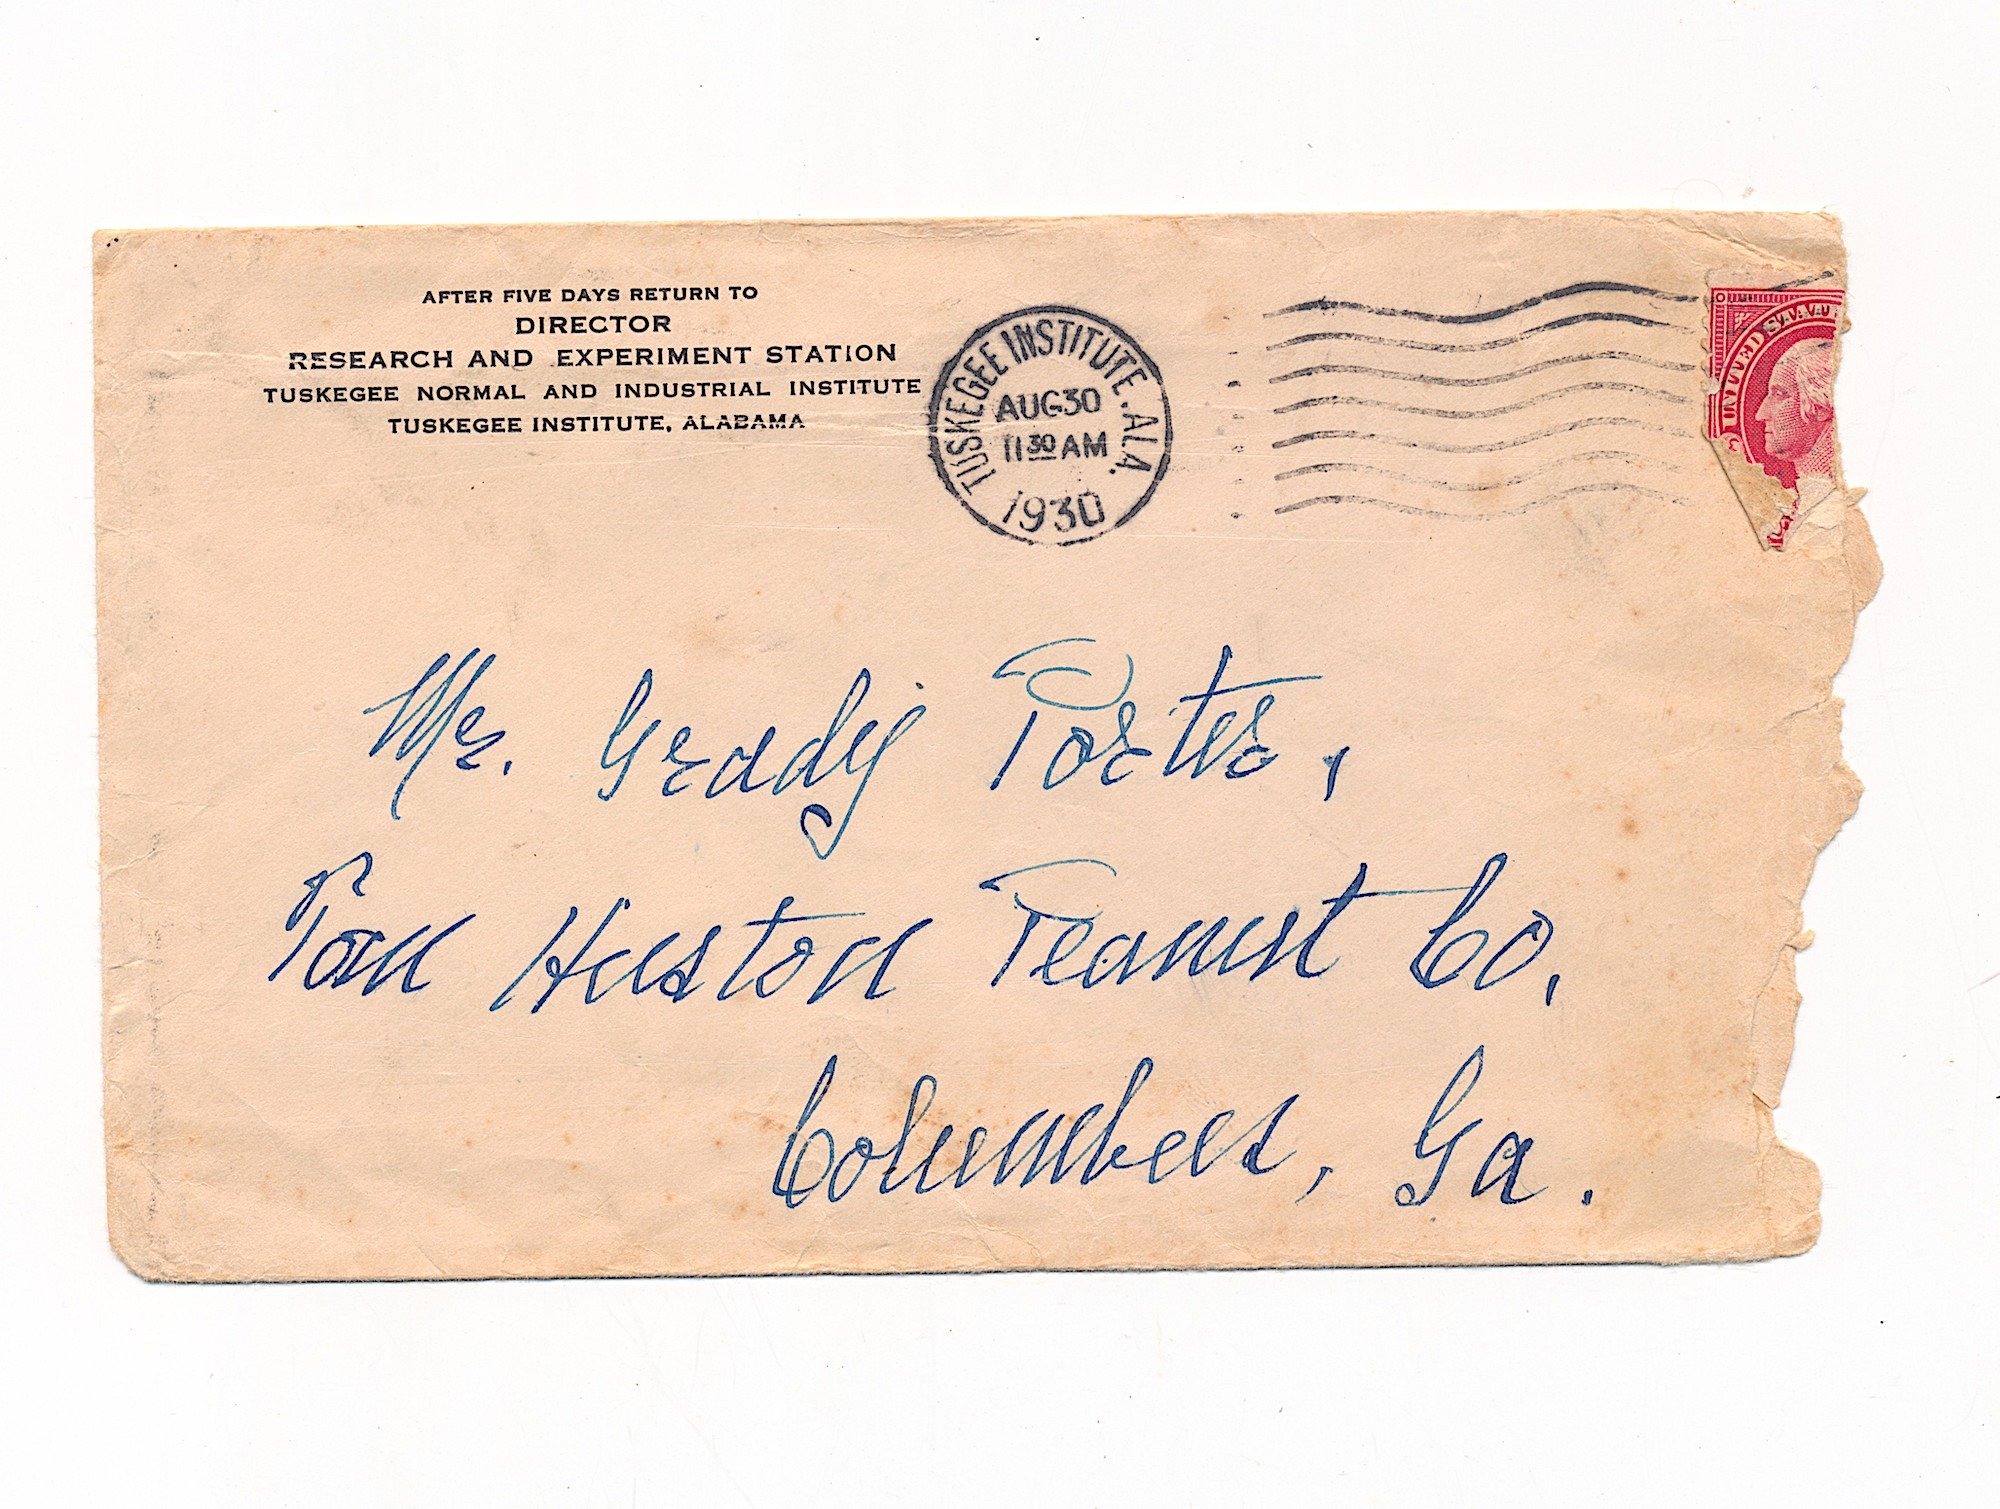 AFTER FIVE DAYS RETURN TO
DIRECTOR
RESEARCH AND EXPERIMENT STATION
TUSKEGEE NORMAL AND INDUSTRIAL INSTITUTE
TUSKEGEE INSTITUTE, ALABAMA
TUSKEGEE INSTITUTE. ALA.
AUG 30
11 30 AM
1930
UNITED
Mr. Grady Porter,
Tom Huston Peanut Co,
Columbus, Ga.